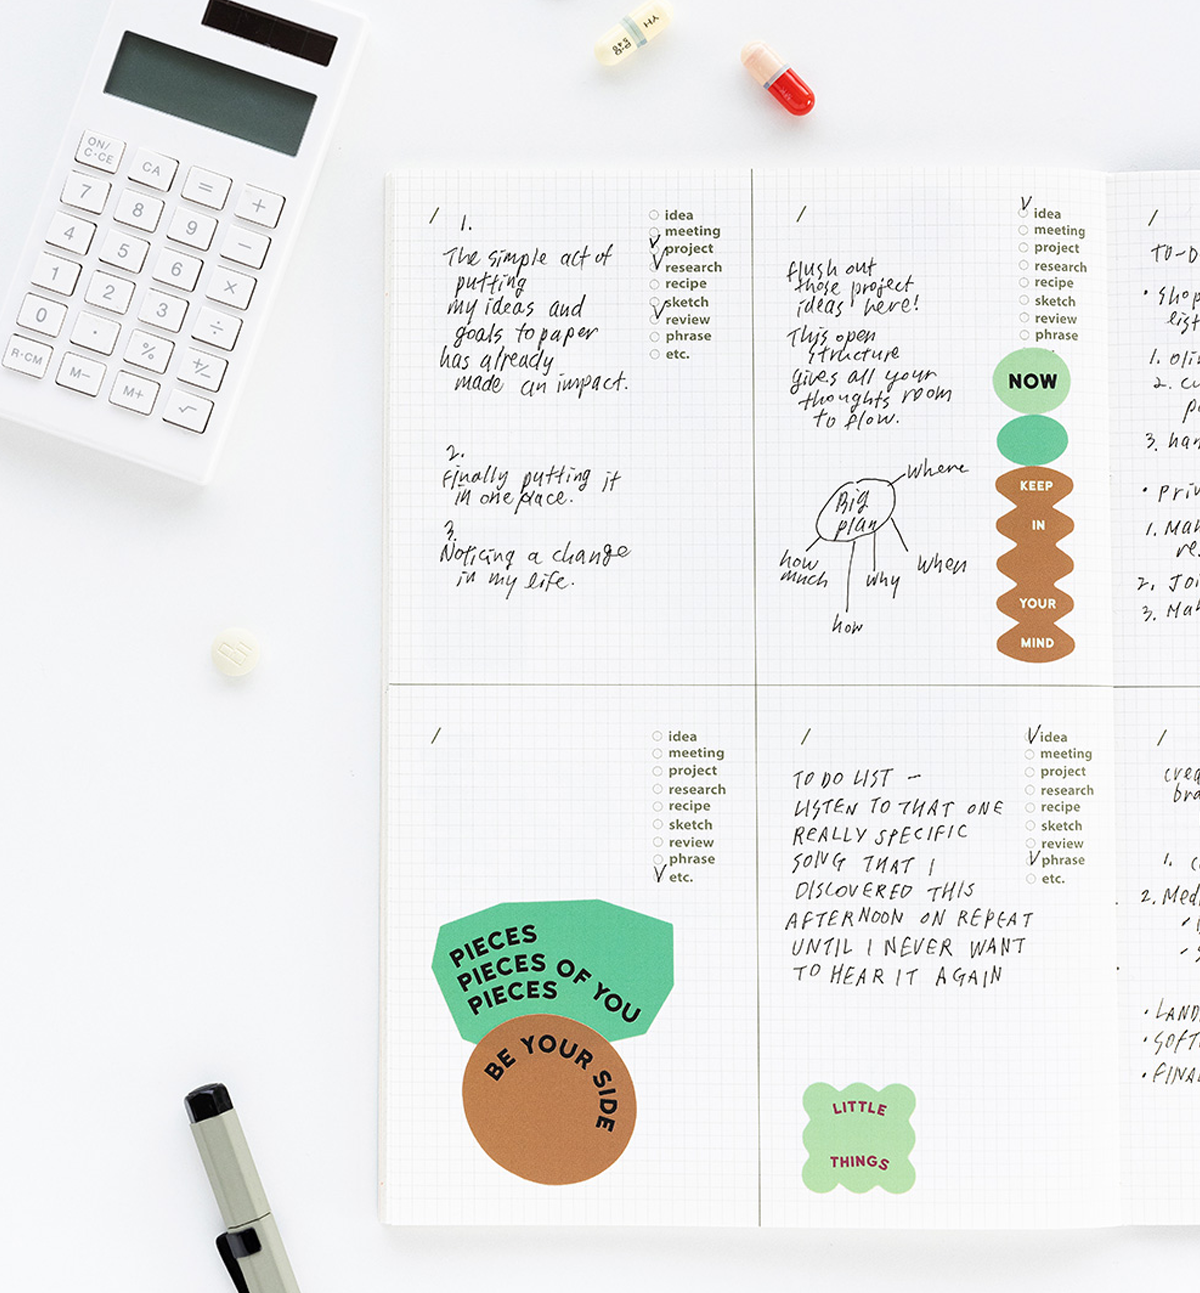 ON/
C·CE
CA
=
+
7
8
9
−
4
5
6
×
1
2
3
÷
0
·
%
+/-
R·CM
M−
M+
√
YH
P·D
540
/
1.
The simple act of
putting
my ideas and
goals to paper
has already
made an impact.
2.
Finally putting it
in one place.
3.
Noticing a change
in my life.
idea
meeting
project
research
recipe
sketch
review
phrase
etc.
/
flush out
those project
ideas here!
This open
structure
gives all your
thoughts room
to flow.
Big
plan
Where
When
why
how
how
much
idea
meeting
project
research
recipe
sketch
review
phrase
NOW
KEEP
IN
YOUR
MIND
/
TO-D
• Shop
list
1. oli
2. cu
3. han
• Priv
1. Mak
re
2. Joi
3. Mak
/
idea
meeting
project
research
recipe
sketch
review
phrase
etc.
PIECES
PIECES OF YOU
PIECES
BE YOUR SIDE
/
TO DO LIST –
LISTEN TO THAT ONE
REALLY SPECIFIC
SONG THAT I
DISCOVERED THIS
AFTERNOON ON REPEAT
UNTIL I NEVER WANT
TO HEAR IT AGAIN
idea
meeting
project
research
recipe
sketch
review
phrase
etc.
LITTLE
THINGS
/
crea
bra
1. c
2. Med
• LAND
• SOFT
• FINA